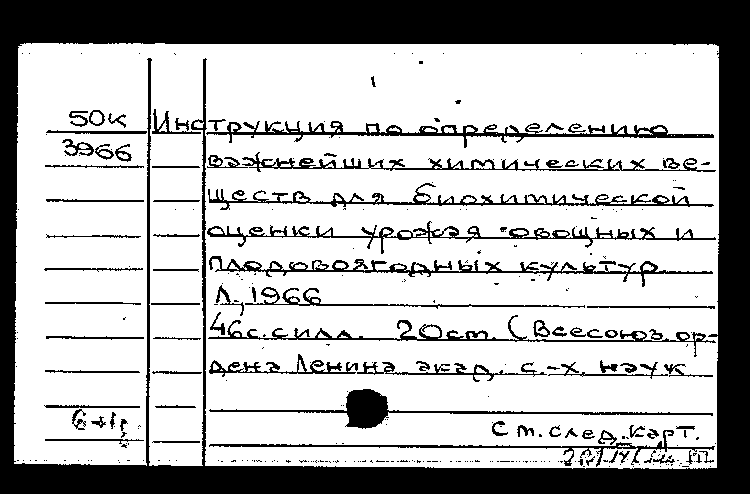 50к Инструкция по определению
3966 важнейших химических ве-
ществ для биохимической
оценки урожая овощных и
плодовоягодных культур
Л., 1966
46с.силл. 20cm. (Всесоюз. ор-
дена Ленина акад. с.-х. наук
См.след.карт.